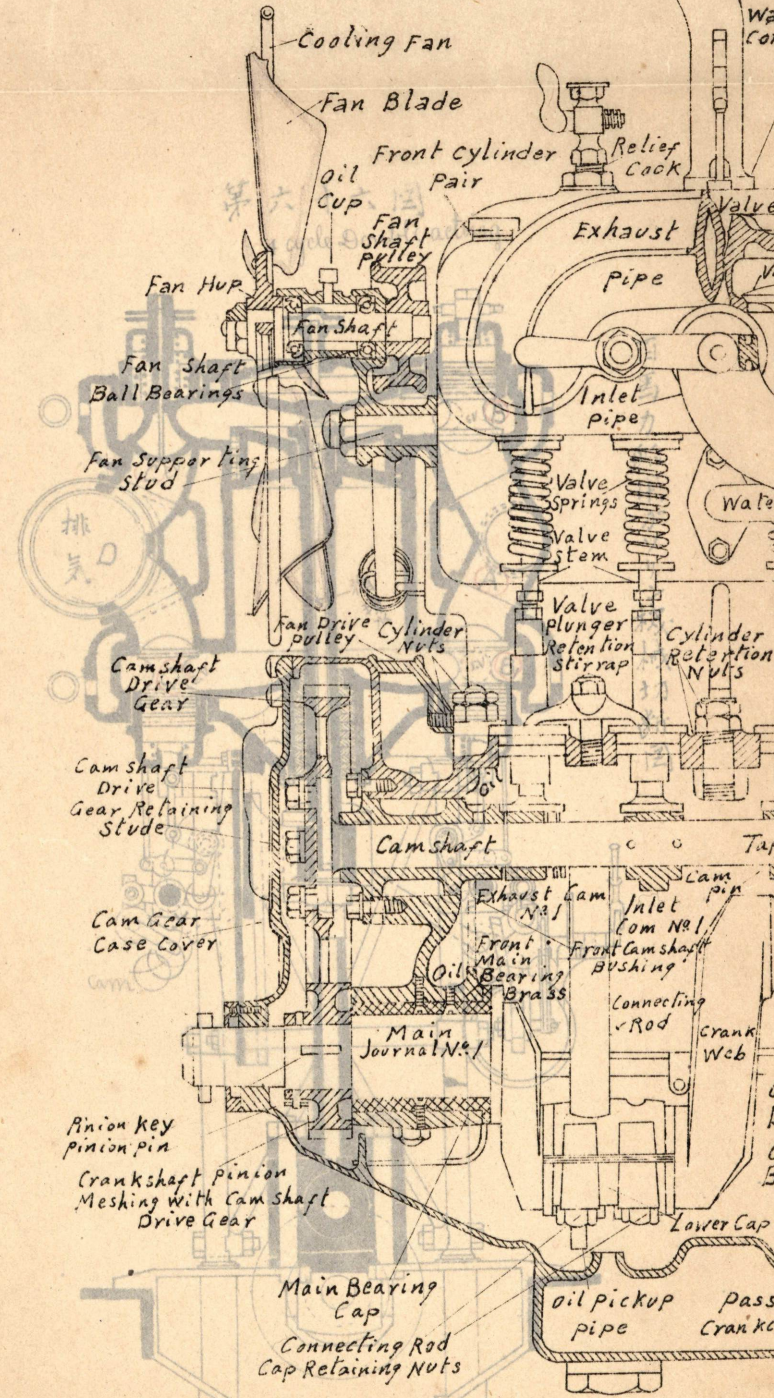 Cooling Fan
Fan Blade
Front Cylinder
Pair
Relief
Cock
Oil
Cup
Fan
Shaft
Pulley
第六
Exhaust
Pipe
Valve
Fan Hup
Fan Shaft
Fan Shaft
Ball Bearings
Inlet
Pipe
Fan Supporting
Stud
Valve
Springs
Wate
Valve
Stem
排
気
D
Fan Drive
Pulley
Cylinder
Nuts
Valve
Plunger
Retention
Stirrap
Cylinder
Retertion
Nuts
Camshaft
Drive
Gear
Cam shaft
Drive
Gear Retaining
Stude
Oil
Camshaft
Tap
Cam
Pin
Exhaust Cam
Nº1
Inlet
Com Nº1
Cam Gear
Case Cover
Front
Main
Bearing
Brass
Front Camshaft
Bushing
Oil
Cam
Connecting
Rod
Crank
Web
Main
Journal Nº1
Pinion Key
Pinion pin
Crankshaft Pinion
Meshing with Cam Shaft
Drive Gear
Lower Cap
Main Bearing
Cap
Oil Pickup
Pipe
Pass
Crankc
Connecting Rod
Cap Retaining Nuts